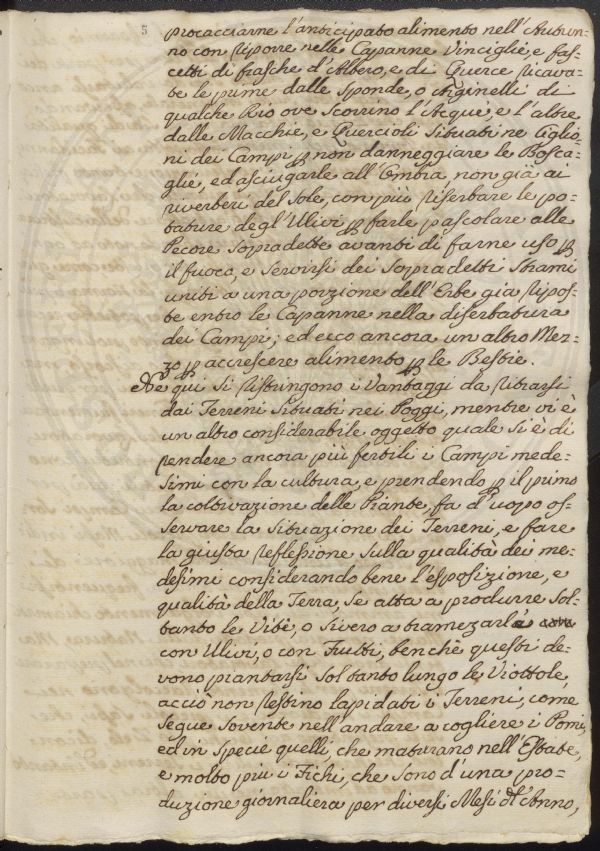 5
procacciarne l'anticipato alimento nell'Autun-
no con riporre nelle Capanne Vinciglie, e fas-
cetti di frasche d'Albero, e di Querce ricava-
te le prime dalle sponde, o Arginelli di
qualche Rio ove scorrino l'Acque, e l'altre
dalle Macchie, e Quercioli situati ne Ciglio-
ni dei Campi p non danneggiare le Bosca-
glie, ed asciugarle all'Ombra non già ai
riverberi del Sole, con più riserbare le po-
tature degl'Ulivi p farle pascolare alle
Pecore sopradette avanti di farne uso p
il fuoco, e servirsi dei sopradetti Strami
uniti a una porzione dell'Erbe già ripos-
te entro le Capanne nella diserbatura
dei Campi; ed ecco ancora un altro Mez-
zo p accrescere alimento p le Bestie.
Nè qui si ristringono i Vantaggi da ritrarsi
dai Terreni situati nei Poggi, mentre vi è
un altro considerabile oggetto quale si è di
rendere ancora più fertili i Campi mede-
simi con la cultura, e prendendo p il primo
la coltivazione delle Piante, fa d'uopo os-
servare la situazione dei Terreni, e fare
la giusta reflessione sulla qualità dei me-
desimi considerando bene l'esposizione, e
qualità della Terra, se atta a produrre sol-
tanto le Vite, o sivero a tramezarle
con Ulivi, o con Frutti, benchè questi de-
vono piantarsi soltanto lungo le Viottole,
acciò non restino lapidati i Terreni, come
segue sovente nell'andare a cogliere i Pomi,
ed in specie quelli, che maturano nell'Estate,
e molto più i Fichi, che sono d'una pro-
duzione giornaliera per diversi Mesi dl'Anno,